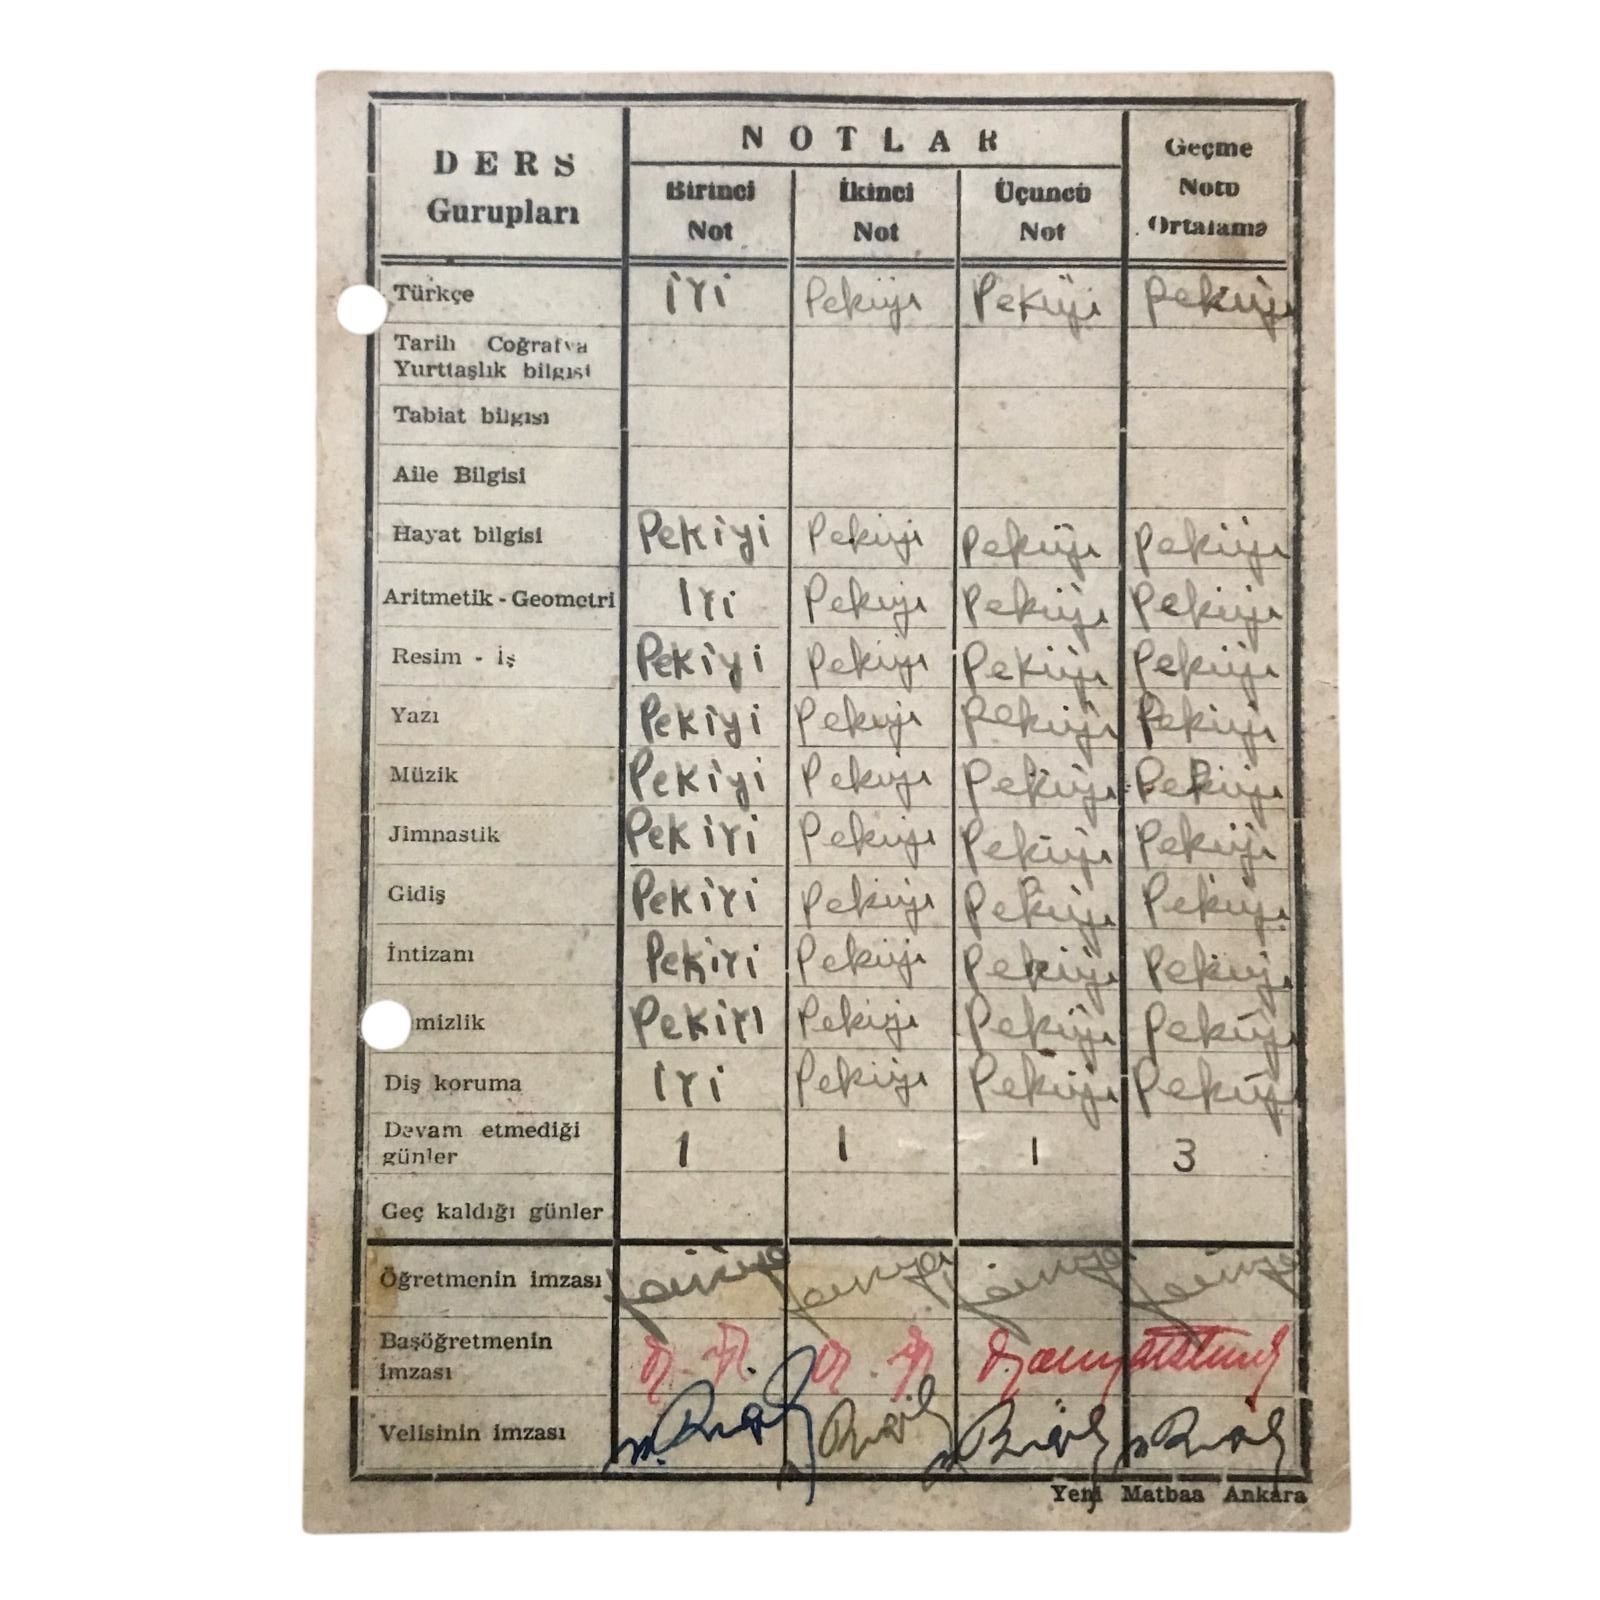 DERS
Gurupları
NOTLAR
Birinci
Not
İkinci
Not
Üçuncü
Not
Geçme
Notu
Ortalama
Türkçe İYİ Pekiyi Pekiyi Pekiyi
Tarih Coğrafya
Yurttaşlık bilgisi
Tabiat bilgisi
Aile Bilgisi
Hayat bilgisi Pekiyi Pekiyi Pekiyi Pekiyi
Aritmetik - Geometri İYİ Pekiyi Pekiyi Pekiyi
Resim - İş Pekiyi Pekiyi Pekiyi Pekiyi
Yazı Pekiyi Pekiyi Pekiyi Pekiyi
Müzik Pekiyi Pekiyi Pekiyi Pekiyi
Jimnastik Pekiyi Pekiyi Pekiyi Pekiyi
Gidiş Pekiyi Pekiyi Pekiyi Pekiyi
İntizam Pekiyi Pekiyi Pekiyi Pekiyi
mizlik Pekiyi Pekiyi Pekiyi Pekiyi
Diş koruma İYİ Pekiyi Pekiyi Pekiyi
Devam etmediği
günler 1 1 1 3
Geç kaldığı günler
Öğretmenin imzası
Başöğretmenin
imzası
Velisinin imzası
Yeni Matbaa Ankara